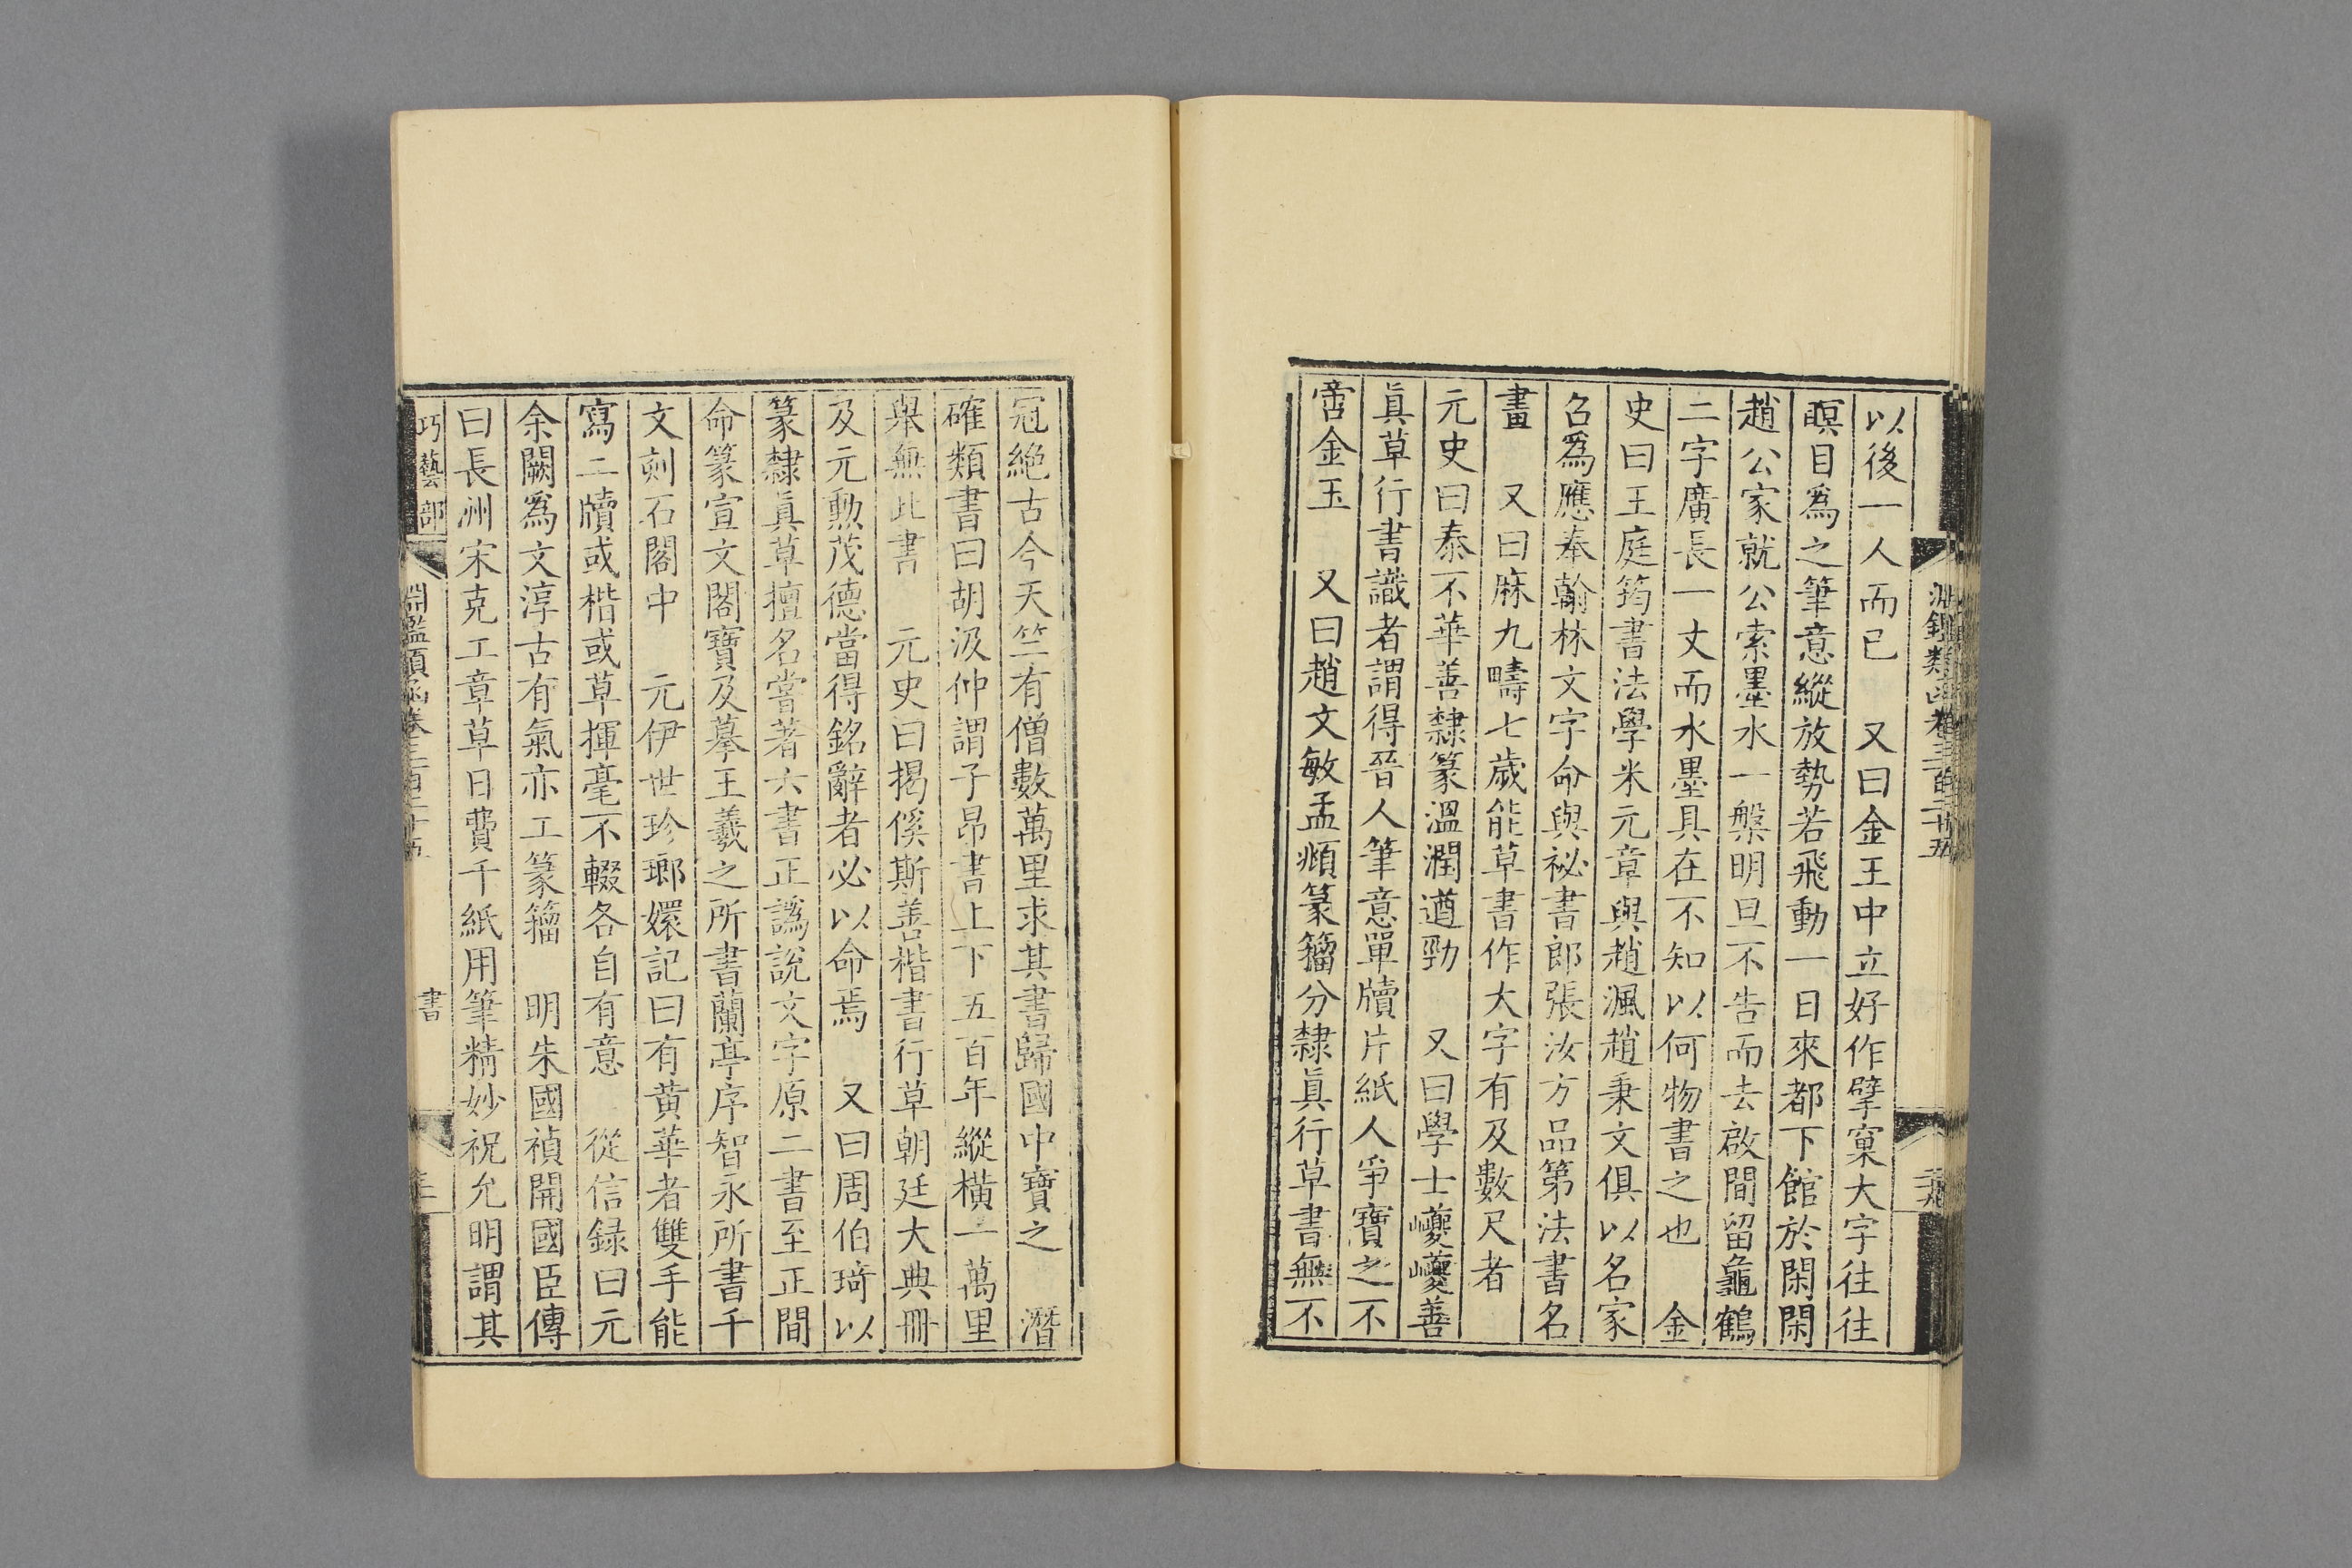 以後一人而已　又曰金王中立好作擘窠大字往往
瞑目爲之筆意縱放勢若飛動一日來都下館於閑閑
趙公家就公索墨水一槃明旦不告而去啟間留龜鶴
二字廣長一丈而水墨具在不知以何物書之也　金
史曰王庭筠書法學米元章與趙渢趙秉文俱以名家
召爲應奉翰林文字命與祕書郎張汝方品第法書名
畫　又曰麻九疇七歲能草書作大字有及數尺者
元史曰泰不華善隸篆溫潤遒勁　又曰學士巎巎善
眞草行書識者謂得晉人筆意單牘片紙人爭寶之不
啻金玉　又曰趙文敏孟頫篆籀分隸眞行草書無不
冠絶古今天竺有僧數萬里求其書歸國中寶之　潛
確類書曰胡汲仲謂子昂書上下五百年縱橫一萬里
舉無此書　元史曰揭傒斯善楷書行草朝廷大典冊
及元勲茂德當得銘辭者必以命焉　又曰周伯琦以
篆隸眞草擅名嘗著六書正譌說文字原二書至正間
命篆宣文閣寶及摹王羲之所書蘭亭序智永所書千
文刻石閣中　元伊世珍瑯嬛記曰有黃華者雙手能
寫二牘或楷或草揮毫不輟各自有意　從信録曰元
余闕爲文淳古有氣亦工篆籀　明朱國禎開國臣傳
曰長洲宋克工章草日費千紙用筆精妙祝允明謂其
巧藝部
淵鑑類函卷三百二十五
書